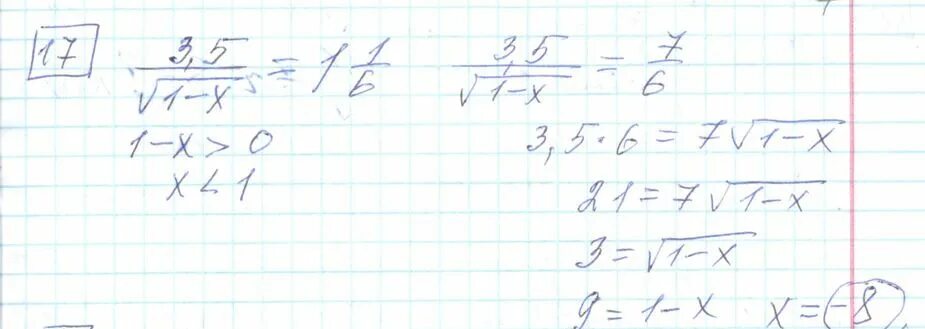 17 3,5/√(1-x) = 1 1/6 3,5/√(1-x) = 7/6
1-x > 0 3,5·6 = 7√(1-x)
x < 1 21 = 7√(1-x)
3 = √(1-x)
9 = 1-x x = -8